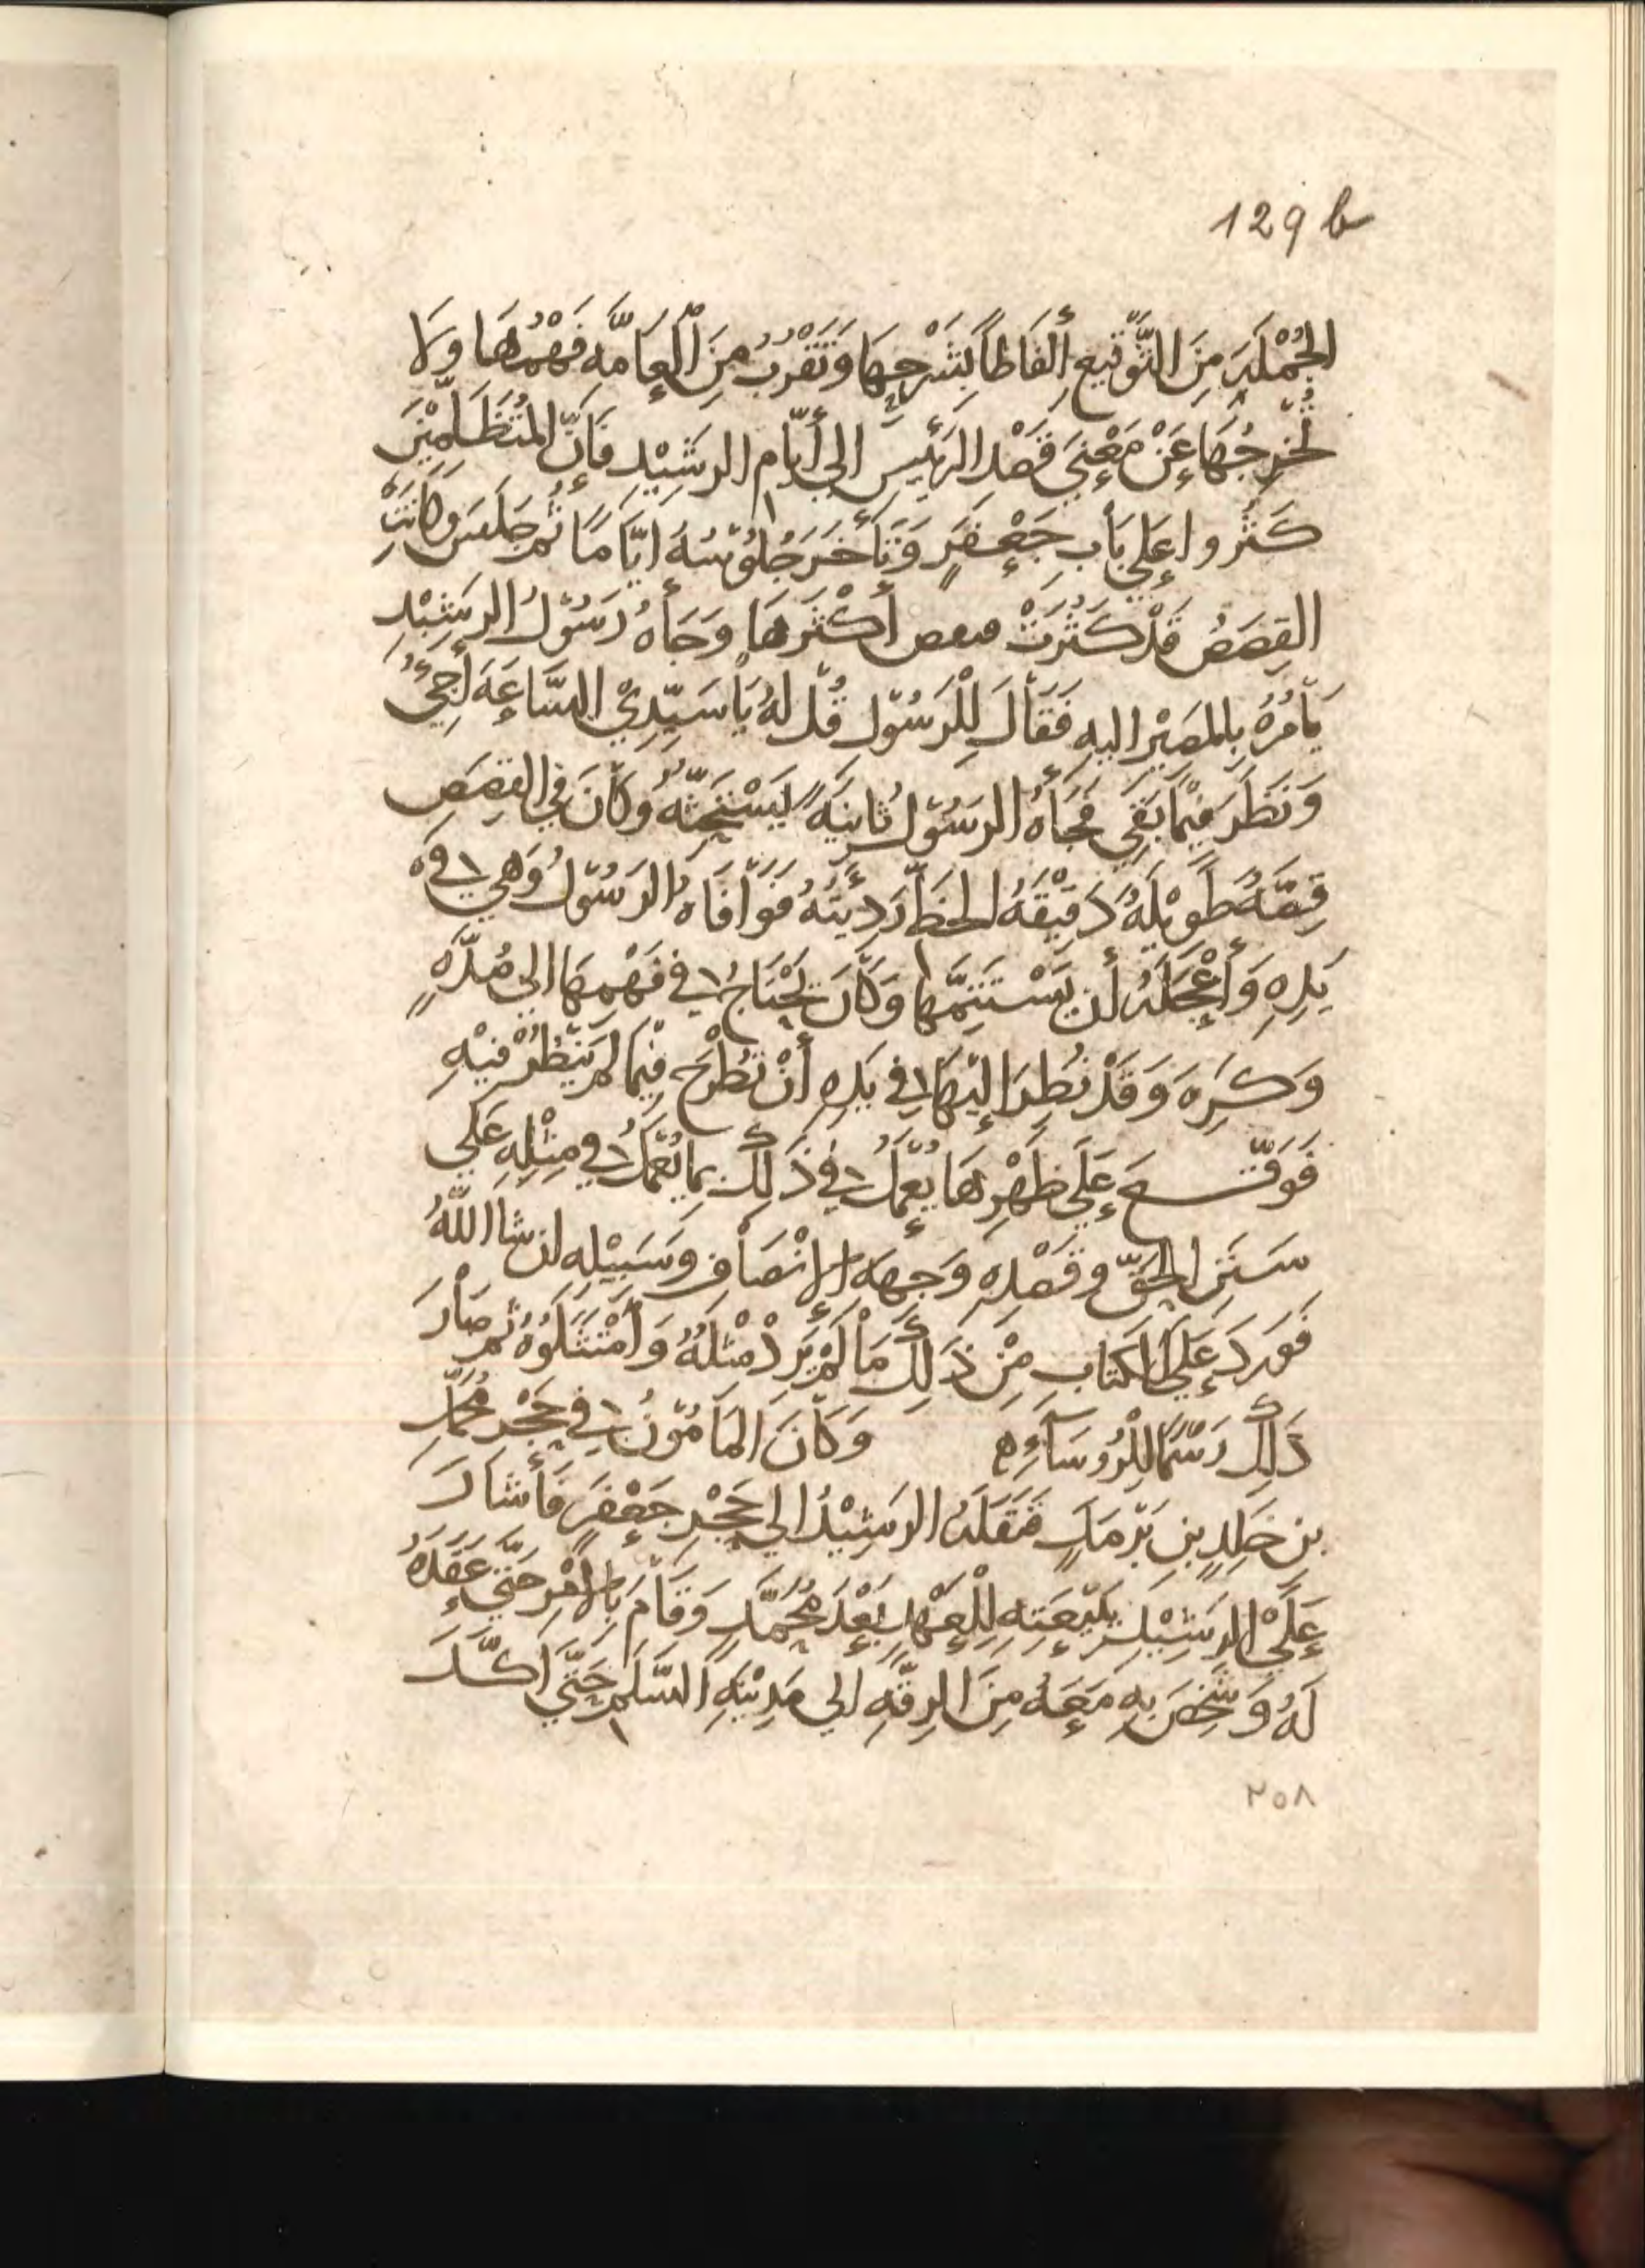 129 b
الجُمْلَةِ مِنَ التَّوْقيعِ أَلفَاظاً بِشَرْحِهَا وَتَقْرُبُ مِنَ اَلْعَامَّهِ فَهْمُهَا وَلَا
تُخرِجُهَا عَنْ مَعْنِيَ قَصْدِ الرَئيسِ الي أَيّام الرشِيْدِ فَإنَّ المُتَظَلِّمِيْنَ
كَثرُوا عَلي بَابِ جَعْفَرٍ وَتَأَخَرَ جُلُوْسُهُ ايَّامًا ثُم جَلَسَ وَكَانَتِ
القِصَصُ قَدْ كَثُرَتْ أَكْثَرهَا وَجَاهُ رَسُوْلُ الرشِيْدِ
يَأمُرُهُ بِالمَصِيْرِ اليهِ فَقَالَ لِلْرَسُوْل قُلْ لَهُ يَا سَيِّدِيْ السَّاعَهَ أَجِيُ
وَنَظَرَ فِيْمَا بَقِيَ فَجَأهُ الرسُوْلُ ثَانِيَهً يَسْتَحِثُّهُ وَكَانَ فِي القِصَصِ
قِصَّهُ طَوِيْلَهٌ دَقِيْقَهُ الخَظِّ رَدِئَيَهُ فَوَافَاهُ الرَسُوْلُ وَهِي في
يَدِهِ وَأَعْجَلَهُ أن يَسْتَتِمَّهَا وَكَانَ يَحْتَاجُ في فَهْمِهَا الي مُدَّهٍ
وَكَرِهَ وَقَدْ نُظِرَ إلَيْهَا في يَدِهِ أَنْ تُطْرَحَ فِيْمَا لمْ يَنْظُرْ فيْهِ
فَوَقَّـعَ عَلَي ظَهْرِهَا يُعْمَلُ في ذَلِكَ بِمَا يُعْمَلُ في مِثْلِهِ عَلَي
سَنَنِ الحَقِّ وقَصْدِهِ وَجِهَهِ الإِنْصَافِ وَسَبِيْلِهِ ان شا اللَّهُ
فَوَرَدَ عَلَي الكتابِ مِنْ ذَلِكَ مَا لَمْ يَرِدْ مِثْلُهُ وَامْتَثَلُوْهُ ثم صَارَ
ذَلِكَ رَسْمًا لِلْرُوسَآءِ وَكَانَ المَامُوْنُ في حَجْرِ مُحَمَّدِ
بنِ خَلِدِ بنِ بَرْمَكٍ فَنَقَلَهُ الرشِيْدُ الي حَجْرِ جَعْفَرٍ فَأَشَارَ
عَلَي الرشِيْدِ بِبَيْعَتِهِ لِلْعَهْدِ بَعْدَ مُحَمَّدٍ وَقَامَ بِالأَمْرِ حَتَّي عَقَدَهُ
لَهُ وَشَخَصَ بِهِ مَعَهُ مِنَ الرقَّهِ الي مَدِيْنَهِ السَّلَمِ حَتَّي اكَّدَ
٢٥٨